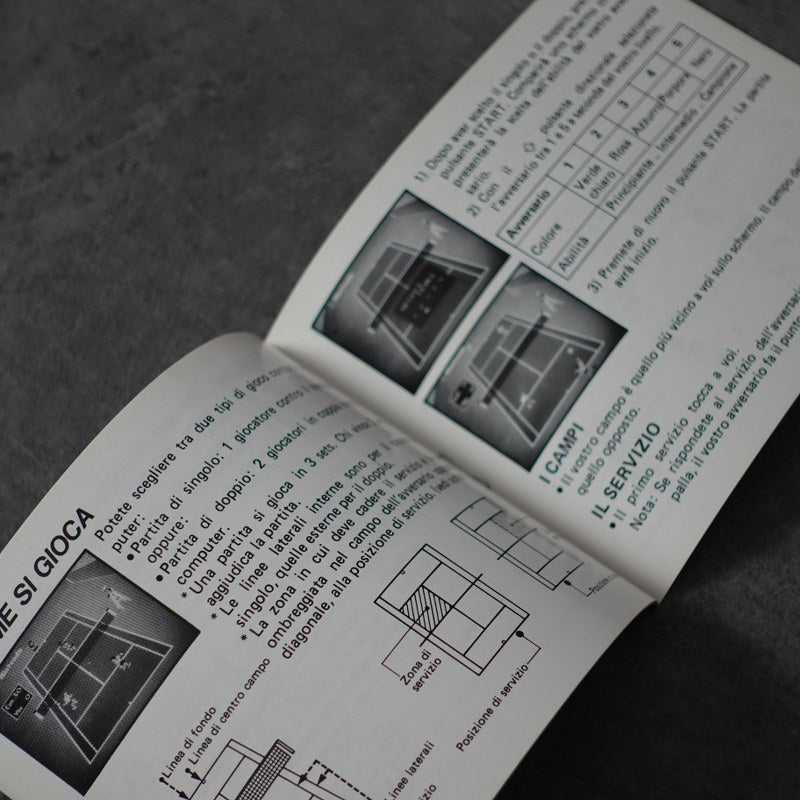 ME SI GIOCA
Potete scegliere tra due tipi di gioco
puter:
•Partita di singolo: 1 giocatore contro il
oppure:
•Partita di doppio: 2 giocatori in coppia
computer.
* Una partita si gioca in 3 sets. Chi
aggiudica la partita.
* Le linee laterali interne sono per il
singolo, quelle esterne per il doppio.
* La zona in cui deve cadere il servizio
ombreggiata nel campo dell'avversario
diagonale, alla posizione di servizio.
Zona di
servizio
Posizione di servizio
Posizione
Linea di fondo
Linea di centro campo
Linee laterali
1) Dopo aver scelto il singolo o il doppio,
pulsante START. Comparirà uno schermo
presenterà la scelta dell'abilità del vostro
sario.
2) Con il pulsante direzionale selezionate
l'avversario tra 1 e 5 a seconda del vostro livello.
Avversario 1 2 3 4 5
Colore Verde chiaro Rosa Azzurro Porpora Nero
Abilità Principiante - Intermedio - Campione
3) Premete di nuovo il pulsante START. La partita
avrà inizio.
I CAMPI
• Il vostro campo è quello più vicino a voi sullo schermo. Il campo
quello opposto.
IL SERVIZIO
• Il primo servizio tocca a voi.
Nota: Se rispondete al servizio dell'avversario
palla, il vostro avversario fa il punto